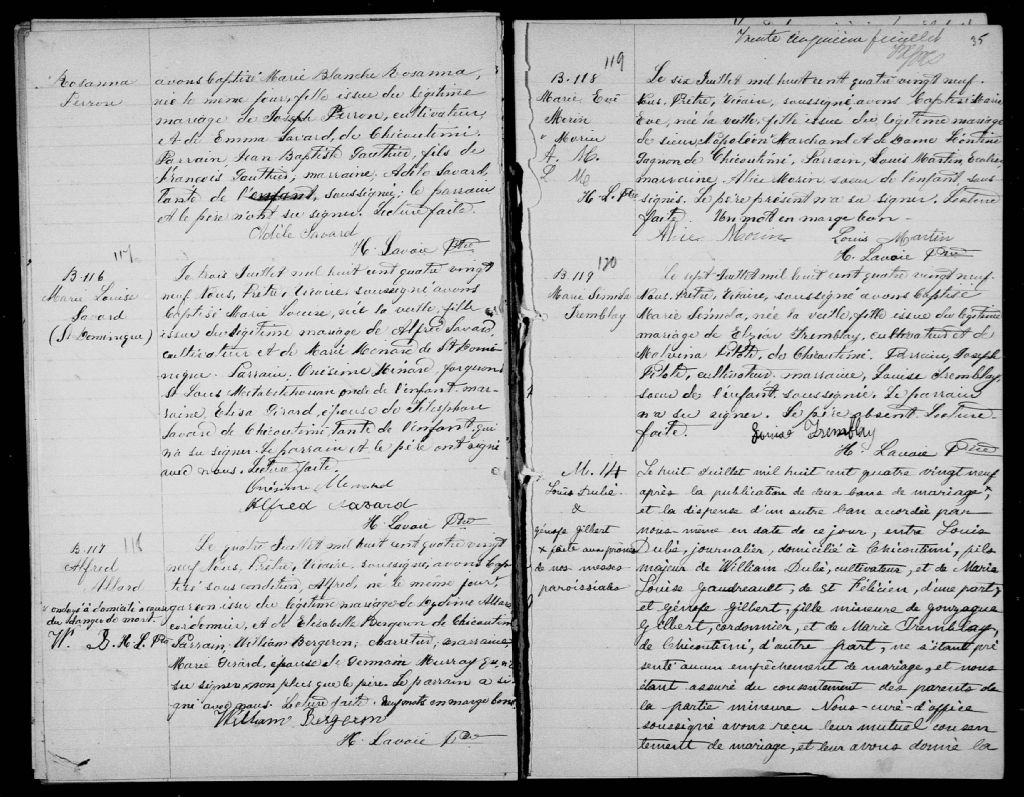 Rosanna
Perron
avons baptisé Marie Blanche Rosanna,
née le même jour, fille issue du légitime
mariage de Joseph Perron, cultivateur,
et de Emma Savard, de Chicoutimi.
Parrain Jean Baptiste Gauthier, fils de
François Gauthier, marraine, Adèle Savard,
tante de l'enfant, soussignée; le parrain
et le père n'ont su signer. Lecture faite.
Odile Savard
H. Lavoie Ptre
117
B. 116
Marie Louise
Savard
(St Dominique)
Le trois Juillet mil huit cent quatre vingt
neuf. Nous, Prêtre, Vicaire, soussigné avons
baptisé Marie Louise, née la veille, fille
issue du légitime mariage de Alfred Savard
cultivateur et de Marie Ménard de St Domi-
nique. Parrain, Onésime Ménard, forgeron
St Louis Metabetchouan oncle de l'enfant, mar-
raine, Elisa Girard, épouse de Télesphore
Savard de Chicoutimi, tante de l'enfant, qui
n'a su signer. Le parrain, et le père ont signé
avec nous. Lecture faite.
Onésime Menard
Alfred Savard
H. Lavoie Ptre
118
B. 117
Alfred
Allard
v ondoyé à domicile a cause
du danger de mort.
W. B. H. L. Ptre
Le quatre Juillet mil huit cent quatre vingt
neuf Nous, Prêtre, Vicaire, soussigné, avons bap-
tisé sous condition, Alfred, né le même jour,
garçon issu du légitime mariage de Allard
cordonnier, et de Elisabelle Bergeron de Chicoutimi
Parrain, William Bergeron, charretier, marraine,
Marie Girard, épouse de Germain Murray qui n'a
su signer, non plus que le père. Le parrain a si-
gné avec nous. Lecture faite. mots en marge bons
William Bergeron
H. Lavoie Ptre
Trente cinquième feuillet
35
119
B. 118
Marie Eve
Morin
v Morin
A. M.
L M
H. L. Ptre
Le six Juillet mil huit cent quatre vingt neuf.
Nous, Prêtre, Vicaire, soussigné, avons baptisé Marie
Eve, née la veille, fille issue du légitime mariage
de sieur Napoléon Marchand et de Dame Léontine
Gagnon de Chicoutimi, Parrain, Louis Martin,
marraine, Alice Morin, soeur de l'enfant sous-
signés. Le père présent n'a su signer. Lecture
faite. Un mot en marge bon.
Alice Morin Louis Martin
H. Lavoie Ptre
120
B. 119
Marie
Tremblay
Le sept Juillet mil huit cent quatre vingt neuf.
Nous, Prêtre, Vicaire, soussigné avons baptisé
Marie née la veille, fille issue du légitime
mariage de Elzéar Tremblay, cultivateur et de
Malvina Pilote, de Chicoutimi. Parrain, Joseph
Pilote, cultivateur, marraine, Louise Tremblay,
soeur de l'enfant, soussignée. Le parrain
n'a su signer. Le père absent. Lecture
faite. Louise Tremblay
H. Lavoie Ptre
M. 14
Louis Dubé
&
génofe gilbert
x faite aux prônes
de nos messes
paroissiales
Le huit Juillet mil huit cent quatre vingt neuf
après la publication de deux bans de mariage x,
et la dispense d'un autre ban accordée par
nous-même en date de ce jour, entre Louis
Dubé, journalier, domicilié à Chicoutimi, fils
majeur de William Dubé, cultivateur, et de Marie
Louise Gaudreault, de St Félicien, d'une part;
et génofe gilbert, fille mineure de gonzague
gilbert, cordonnier, et de Marie Tremblay,
de Chicoutimi, d'autre part, ne s'étant pré
senté aucun empêchement de mariage, et nous
étant assuré du consentement des parents de
la partie mineure Nous-curé-d'office
soussigné avons reçu leur mutuel consen
tement de mariage, et leur avons donné la